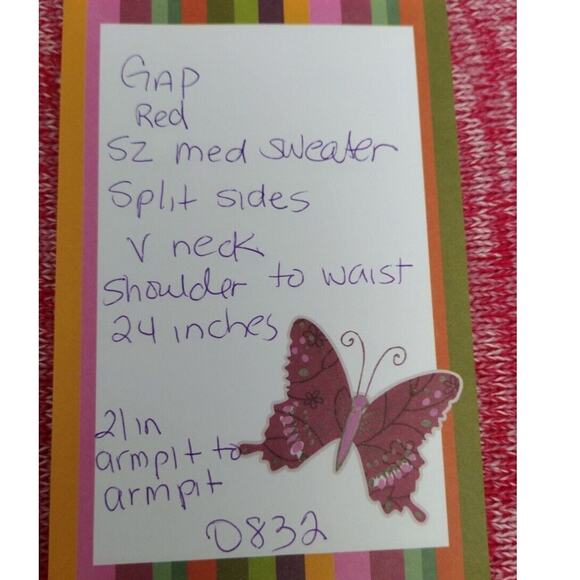 GAP
Red
SZ med sweater
Split sides
V neck
shoulder to waist
24 inches
21 in
armpit to
armpit
0832